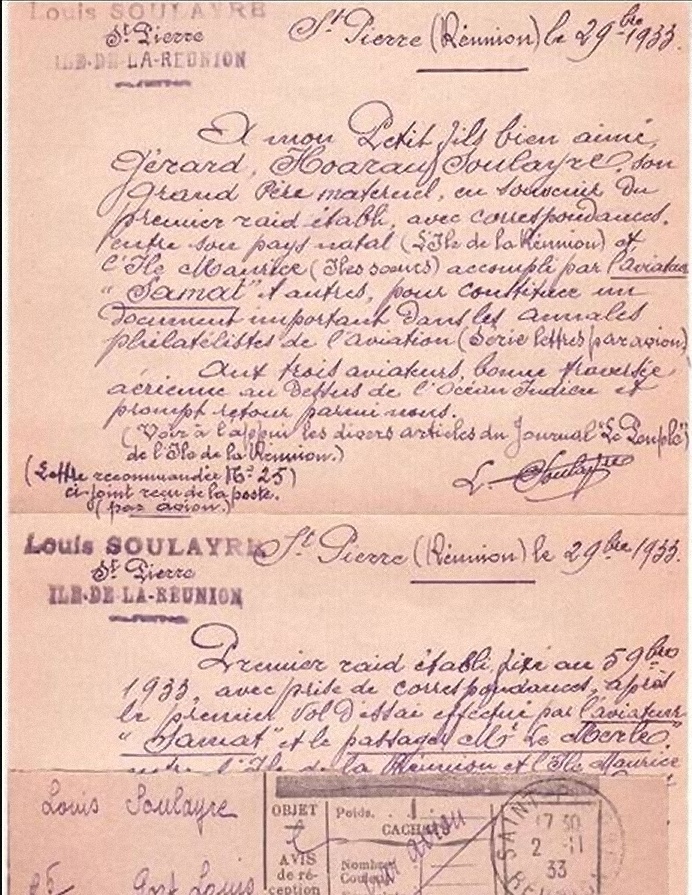 Louis SOULAYRE
St Pierre
ILE-DE-LA-REUNION
St Pierre (Réunion) le 2 9bre 1933.
A mon Petit fils bien aimé,
Gérard, Hoarau Soulayre, son
Grand Père maternel, en souvenir du
premier raid établi, avec correspondances.
entre son pays natal (L'Ile de la Réunion) et
l'Ile Maurice (Iles soeurs) accompli par l'aviateur
"Samat" et autres, pour constituer un
Document important dans les annales
philatélistes de l'aviation (Série lettres par avion)
Aux trois aviateurs, bonne traversée
aérienne au Dessus de l'Océan Indien et
prompt retour parmi nous.
(Voir à l'appui les divers articles du Journal "Le Peuple"
de l'Ile de la Réunion.)
(Lettre recommandée No 25)
ci-joint reçu de la poste.
(par avion.)
L. Soulayre
Louis SOULAYRE
St Pierre
ILE-DE-LA-REUNION
St Pierre (Réunion) le 2 9bre 1933.
Premier raid établi, fixé au 5 9bre
1933, avec prise de correspondances, après
le premier Vol D'essai effectué par l'aviateur
"Samat" et le passager Mr Le Merle"
entre l'Ile de la Réunion et l'Ile Maurice
Louis Soulayre
OBJET
Poids.
CACHE
par avion
AVIS
de ré-
ception
Nombre
Couleur
SAINT-P
17 30
2 -11
33
REUNION
25
Port Louis